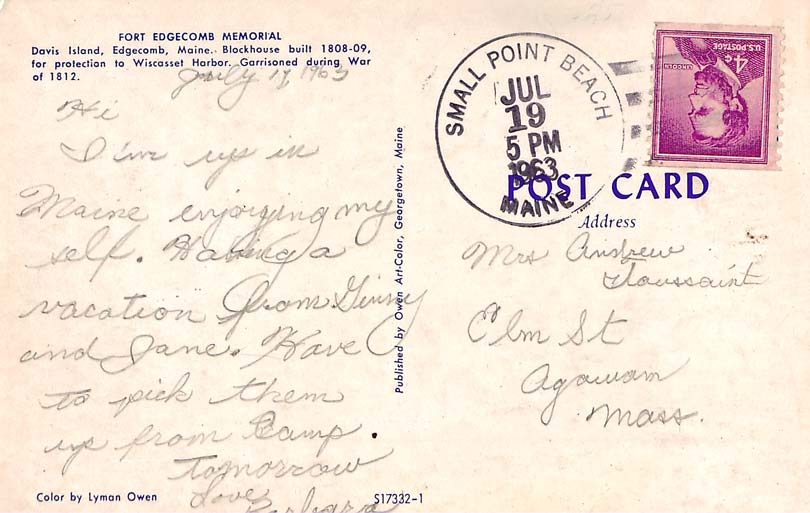 FORT EDGECOMB MEMORIAL
Davis Island, Edgecomb, Maine. Blockhouse built 1808-09,
for protection to Wiscasset Harbor. Garrisoned during War
of 1812.
July 17, 1963
Hi
I'm up in
Maine enjoying my
self. Having a
vacation from Ginny
and Jane. Have
to pick them
up from Camp.
Tomorrow
Love,
Barbara
Color by Lyman Owen
S17332-1
Published by Owen Art-Color, Georgetown, Maine
SMALL POINT BEACH
JUL
19
5 PM
1963
MAINE
U.S. POSTAGE
4¢
LINCOLN
POST CARD
Address
Mrs Andrew
Toussaint
Elm St
Agawam
Mass.